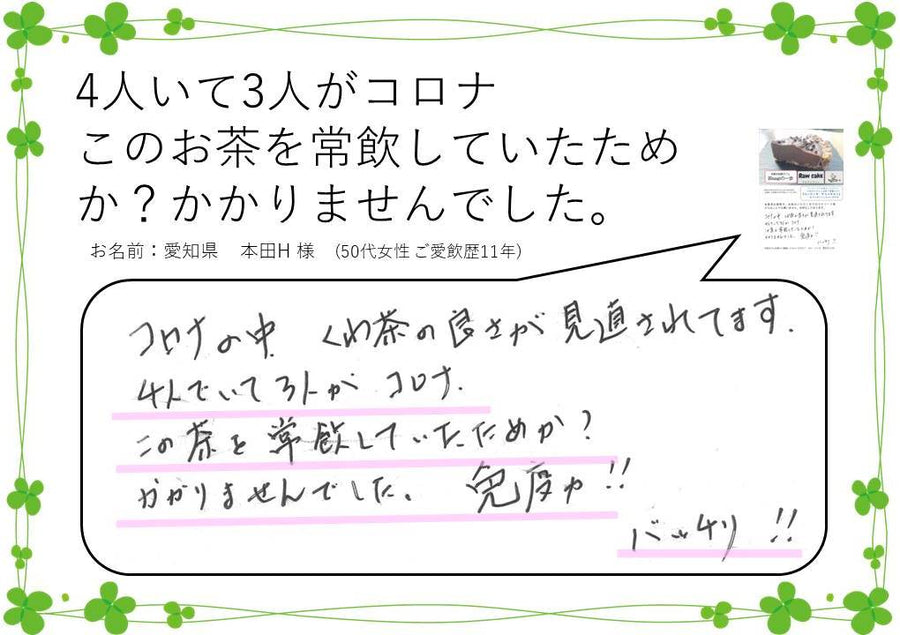 4人いて3人がコロナ
このお茶を常飲していたため
か？かかりませんでした。
お名前：愛知県　本田H 様　(50代女性 ご愛飲歴11年)
Raw cake
コロナの中 くわ茶の良さが見直されてます.
4人でいて3人が コロナ.
この茶を常飲していたためか?
かかりませんでした。 免疫力!!
バッチリ!!